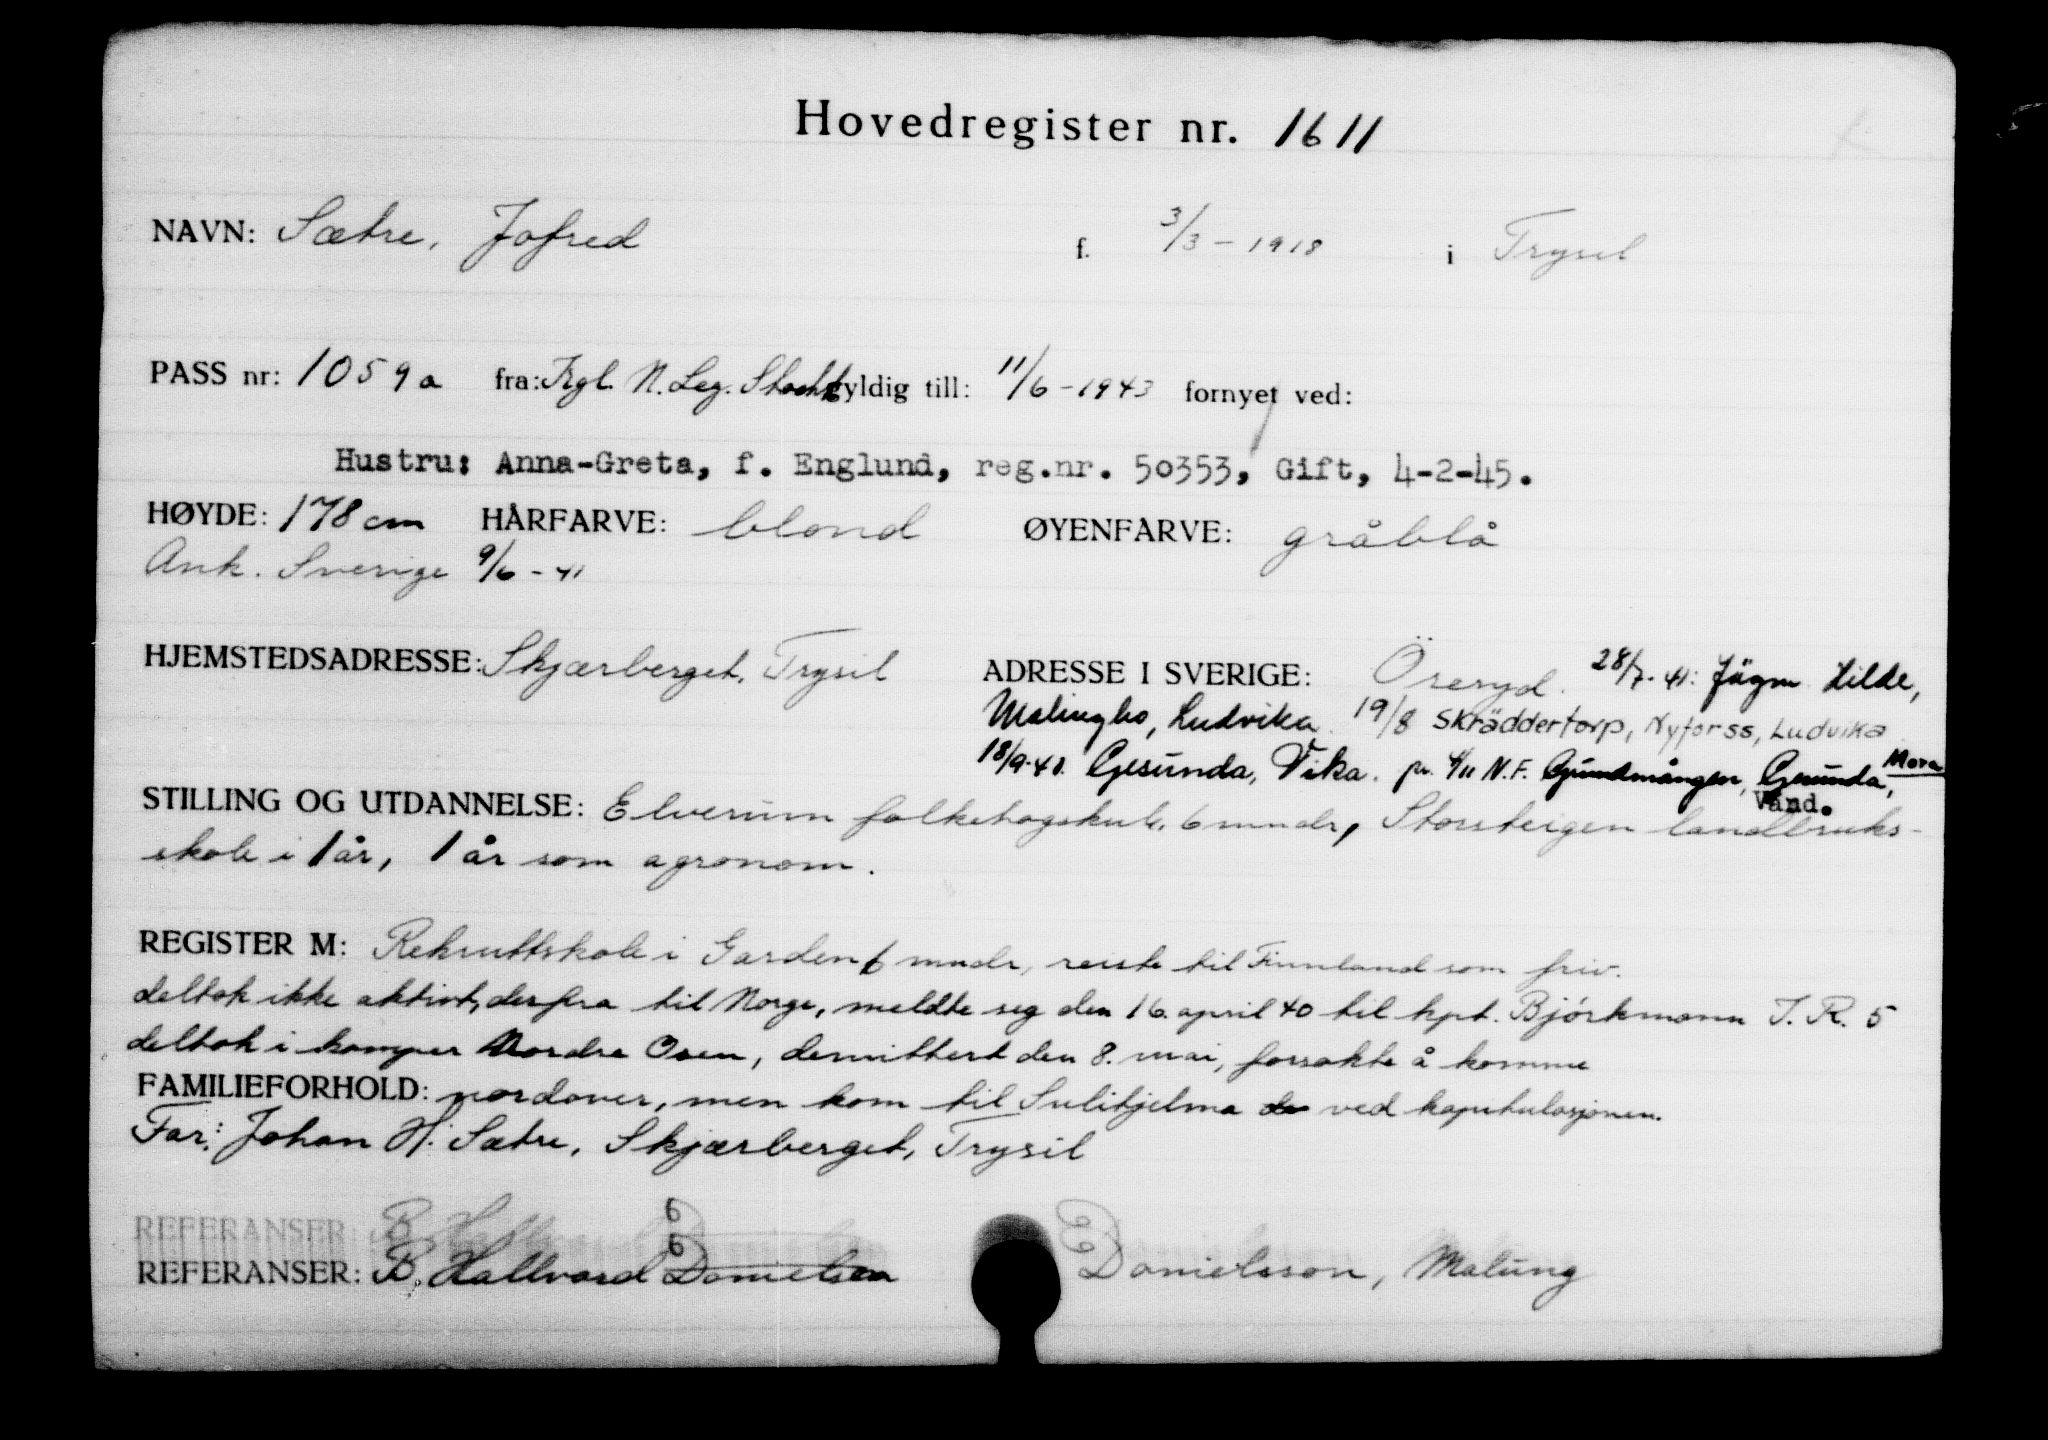 Hovedregister nr. 1611
NAVN: Sætre, Jofred f. 3/3 - 1918 i Trysil
PASS nr: 1059a fra: Kgl. N. Leg. Stockh gyldig till: 11/6 - 1943 fornyet ved:
Hustru: Anna-Greta, f. Englund, reg.nr. 50353, Gift, 4-2-45.
HØYDE: 178 cm HÅRFARVE: blond ØYENFARVE: gråblå
Ank. Sverige 9/6 - 41
HJEMSTEDSADRESSE: Skjærberget, Trysil ADRESSE I SVERIGE: Öreryd. 28/7-41: Jägm. Lilde,
Malingbo, Ludvika. 19/8 Skräddertorp, Nyforss, Ludvika
18/9-41. Gesunda, Vika. pr. 4/11 N.F. Gesunda, Mora
Vand.
STILLING OG UTDANNELSE: Elverum folkehøgskule, 6 mndr, Storsteigen landbruks-
skole i 1 år, 1 år som agronom.
REGISTER M: Rekruttskole i Garden 6 mndr, reiste til Finnland som friv.
deltok ikke aktivt, derfra til Norge, meldte seg den 16. april 40 til kpt. Bjørkmann I.R. 5
deltok i kamper Nordre Osen, demittert den 8. mai, forsøkte å komme
FAMILIEFORHOLD: nordover, men kom til Sulitjelma ved kapitulasjonen.
Far: Johan H. Sætre, Skjærberget, Trysil
REFERANSER: B. Hallvard Danielsen Danielsson, Malung